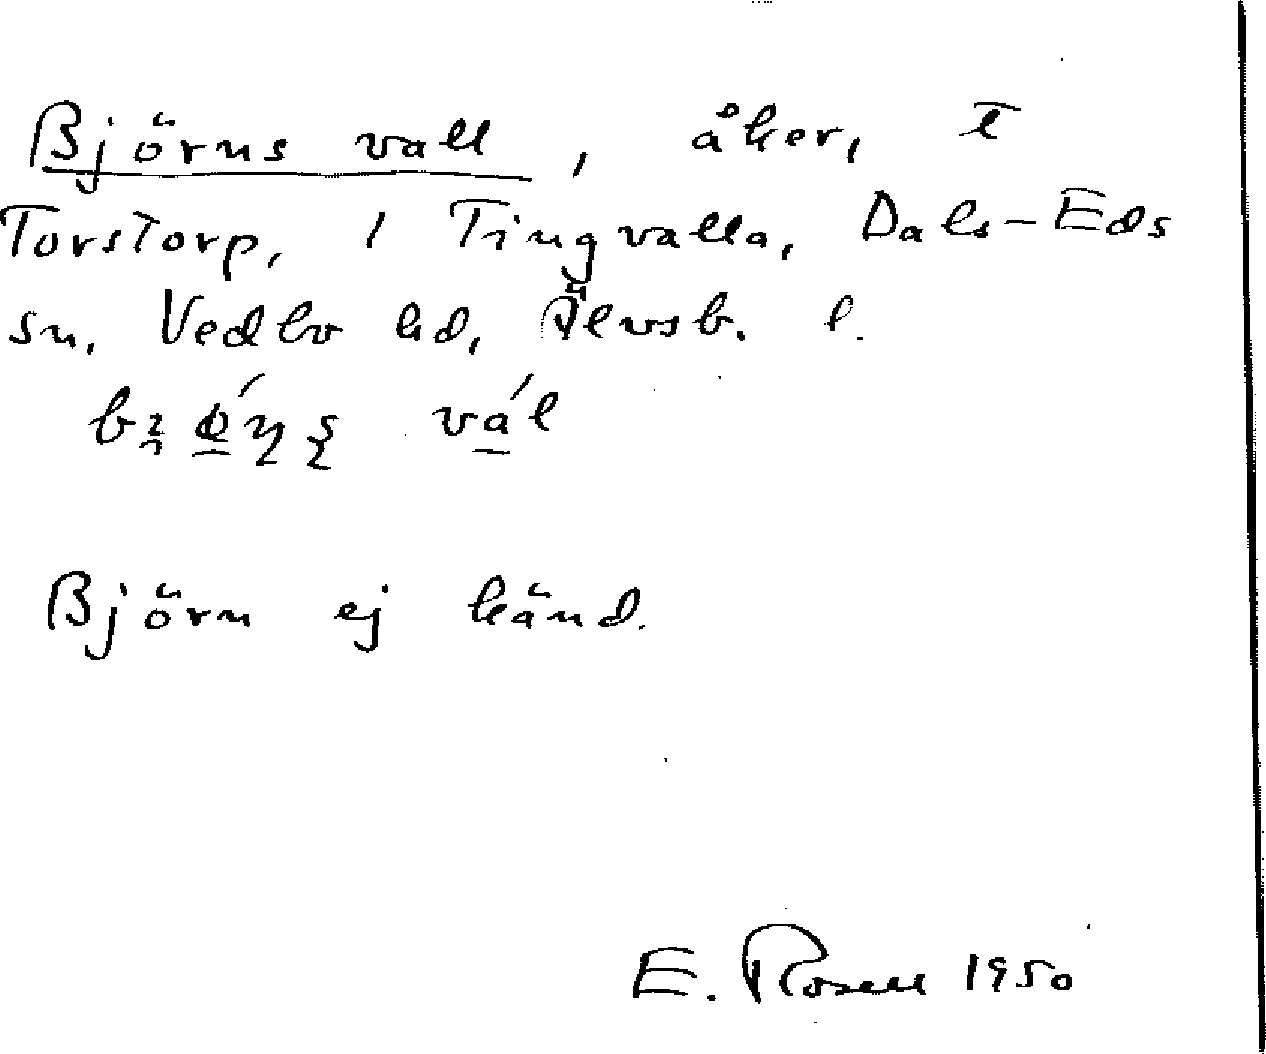 Björns vall, åker, t
Torstorp, 1 Tingvalla, Dals-Eds
sn, Vedbo hd, Älvsb. l.
vál
Björn ej känd.
E. Rosell 1950